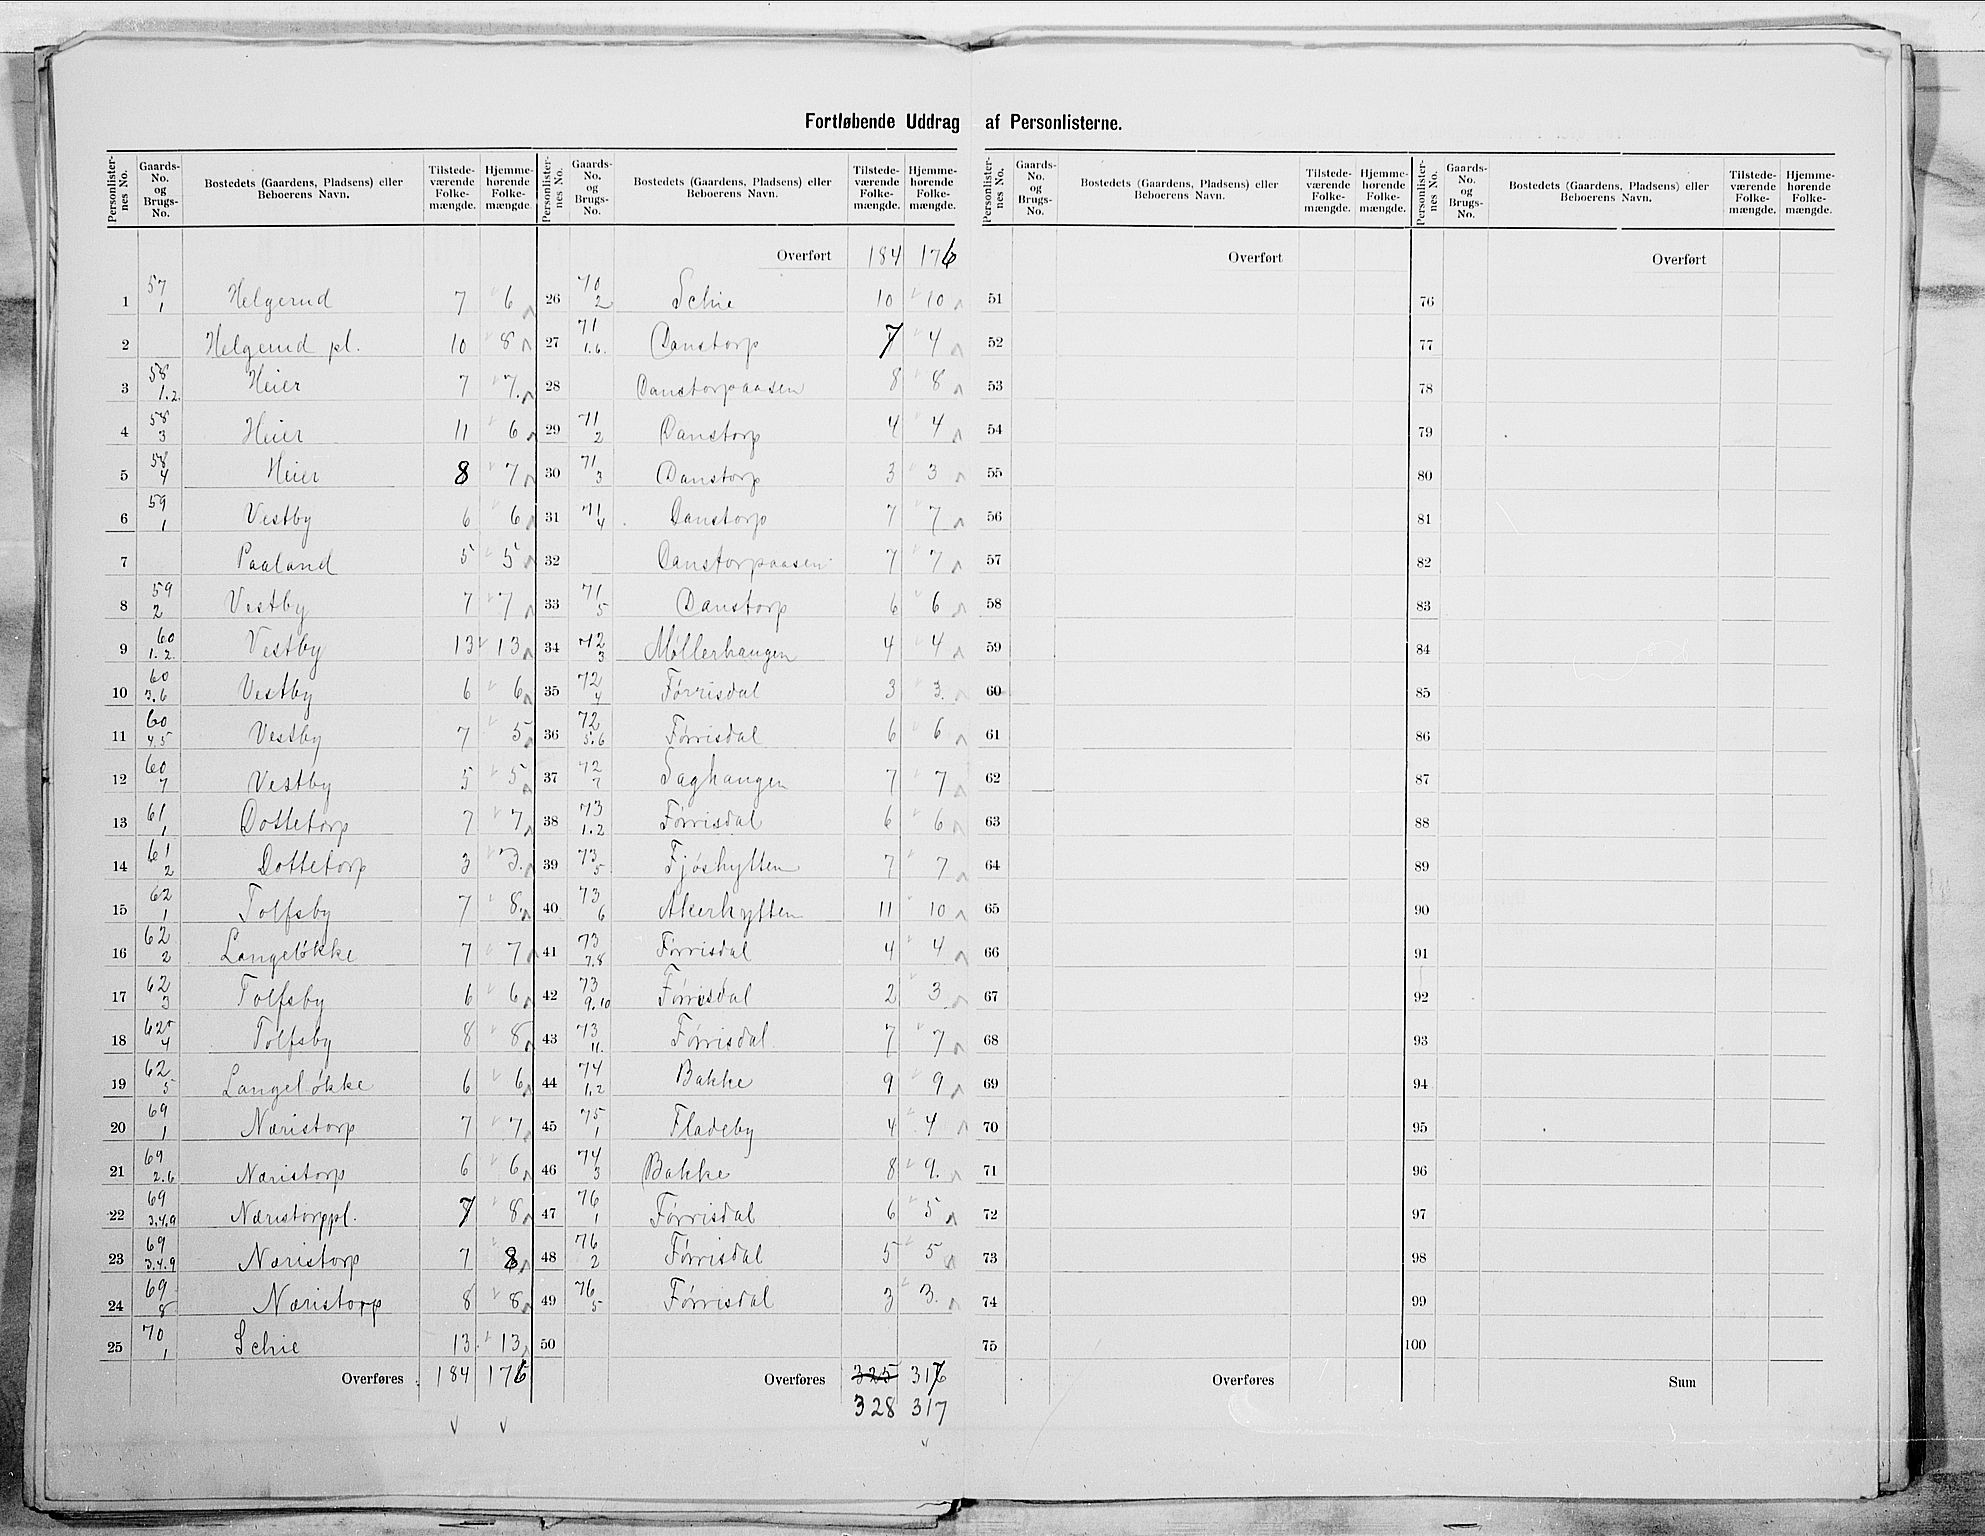 Fortløbende Uddrag af Personlisterne.
Personlister-nes No. | Gaards-No. og Brugs-No. | Bostedets (Gaardens, Pladsens) eller Beboerens Navn. | Tilstede-værende Folke-mængde. | Hjemme-hørende Folke-mængde.
1 | 57 1 | Helgerud | 7 | 6
2 | | Helgerud pl. | 10 | 8
3 | 58 1.2. | Heier | 7 | 7.
4 | 58 3 | Heier | 11 | 6
5 | 58 4 | Heier | 8 | 7
6 | 59 1 | Vestby | 6 | 6
7 | | Paaland | 5 | 5
8 | 59 2 | Vestby | 7 | 7
9 | 60 1.2. | Vestby | 13 | 13
10 | 60 3.6 | Vestby | 6 | 6
11 | 60 4.5 | Vestby | 7 | 5
12 | 60 7 | Vestby | 5 | 5
13 | 61 1 | Dottetorp | 7 | 7
14 | 61 2 | Dottetorp | 3 | 3.
15 | 62 1 | Tolfsby | 7 | 8
16 | 62 2 | Langeløkke | 7 | 7
17 | 62 3 | Tolfsby | 6 | 6
18 | 62 4 | Tolfsby | 8 | 8
19 | 62 5 | Langeløkke | 6 | 6
20 | 69 1 | Næristorp | 7 | 7
21 | 69 2.6 | Næristorp | 6 | 6
22 | 69 3.4.9 | Næristorppl. | 7 | 8
23 | 69 3.4.9 | Næristorp | 7 | 8
24 | 69 8 | Næristorp | 8 | 8
25 | 70 1 | Schie | 13 | 13
Overføres | 184 | 176
Personlister-nes No. | Gaards-No. og Brugs-No. | Bostedets (Gaardens, Pladsens) eller Beboerens Navn. | Tilstede-værende Folke-mængde. | Hjemme-hørende Folke-mængde.
Overført | 184 | 176
26 | 70 2 | Schie | 10 | 10
27 | 71 1.6. | Danstorp | 7 | 4
28 | | Danstorpaasen | 8 | 8
29 | 71 2 | Danstorp | 4 | 4
30 | 71 3 | Danstorp | 3 | 3
31 | 71 4 | Danstorp | 7 | 7
32 | | Danstorpaasen | 7 | 7
33 | 71 5 | Danstorp | 6 | 6
34 | 72 3 | Møllerhaugen | 4 | 4
35 | 72 4 |Førrisdal | 3 | 3.
36 | 72 5.6 | Førrisdal | 6 | 6
37 | 72 7 | Saghaugen | 7 | 7
38 | 73 1.2 | Førrisdal | 6 | 6
39 | 73 5 | Fjøshytten | 7 | 7
40 | 73 6 | Akerhytten | 11 | 10
41 | 73 7.8 | Førrisdal | 4 | 4
42 | 73 9.10 | Førrisdal | 2 | 3
43 | 73 11. | Førrisdal | 7 | 7
44 | 74 1.2 | Bakke | 9 | 9
45 | 75 1 | Fladeby | 4 | 4
46 | 74 3 | Bakke | 8 | 9.
47 | 76 1 | Førrisdal | 6 | 5
48 | 76 2 | Førrisdal | 5 | 5
49 | 76 5 | Førrisdal | 3 | 3.
50
Overføres | 325 | 317
328 | 317
Personlister-nes No. | Gaards-No. og Brugs-No. | Bostedets (Gaardens, Pladsens) eller Beboerens Navn. | Tilstede-værende Folke-mængde. | Hjemme-hørende Folke-mængde.
Overført
51
52
53
54
55
56
57
58
59
60
61
62
63
64
65
66
67
68
69
70
71
72
73
74
75
Overføres
Personlister-nes No. | Gaards-No. og Brugs-No. | Bostedets (Gaardens, Pladsens) eller Beboerens Navn. | Tilstede-værende Folke-mængde. | Hjemme-hørende Folke-mængde.
Overført
76
77
78
79
80
81
82
83
84
85
86
87
88
89
90
91
92
93
94
95
96
97
98
99
100
Sum